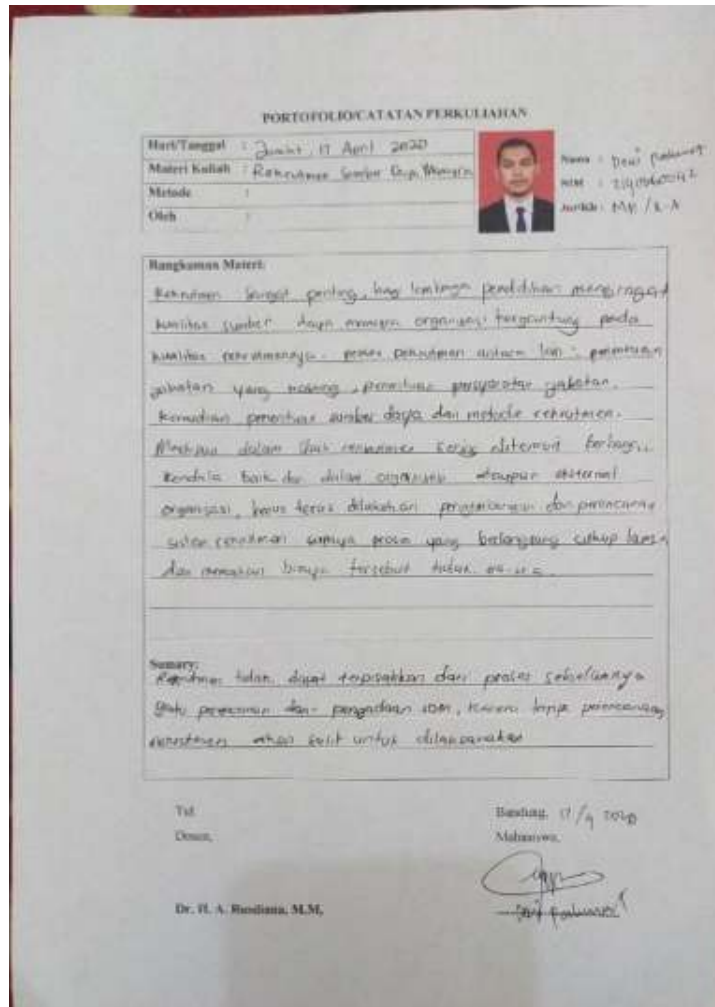 PORTOFOLIO/CATATAN PERKULIAHAN
Hari/Tanggal : Jum'at, 17 April 2020
Materi Kuliah : Rekrutmen Sumber Daya Manusia
Metode :
Oleh :
Nama :
NIM :
Jurusan : MPI /
Rangkuman Materi:
Rekrutmen sangat penting, bagi lembaga pendidikan mengingat
kualitas sumber daya manusia organisasi tergantung pada
kualitas rekrutmennya. proses rekrutmen antara lain : penentuan
jabatan yang kosong, penentuan persyaratan jabatan.
Kemudian penentuan sumber daya dan metode rekrutmen.
Meskipun dalam rekrutmen sering ditemui berbagai
kendala baik dari dalam organisasi ataupun eksternal
organisasi, harus terus dilakukan pengembangan dan perencanaan
sistem rekrutmen supaya proses yang berlangsung cukup lama
dan memakan biaya tersebut tidak
Sumary:
Rekrutmen tidak dapat terpisahkan dari proses sebelumnya
yaitu perencanaan dan pengadaan SDM, karena tanpa perencanaan
rekrutmen akan sulit untuk dilaksanakan
Ttd
Dosen,
Bandung, 17/4 2020
Mahasiswa,
Dr. H. A. Rusdiana, M.M,